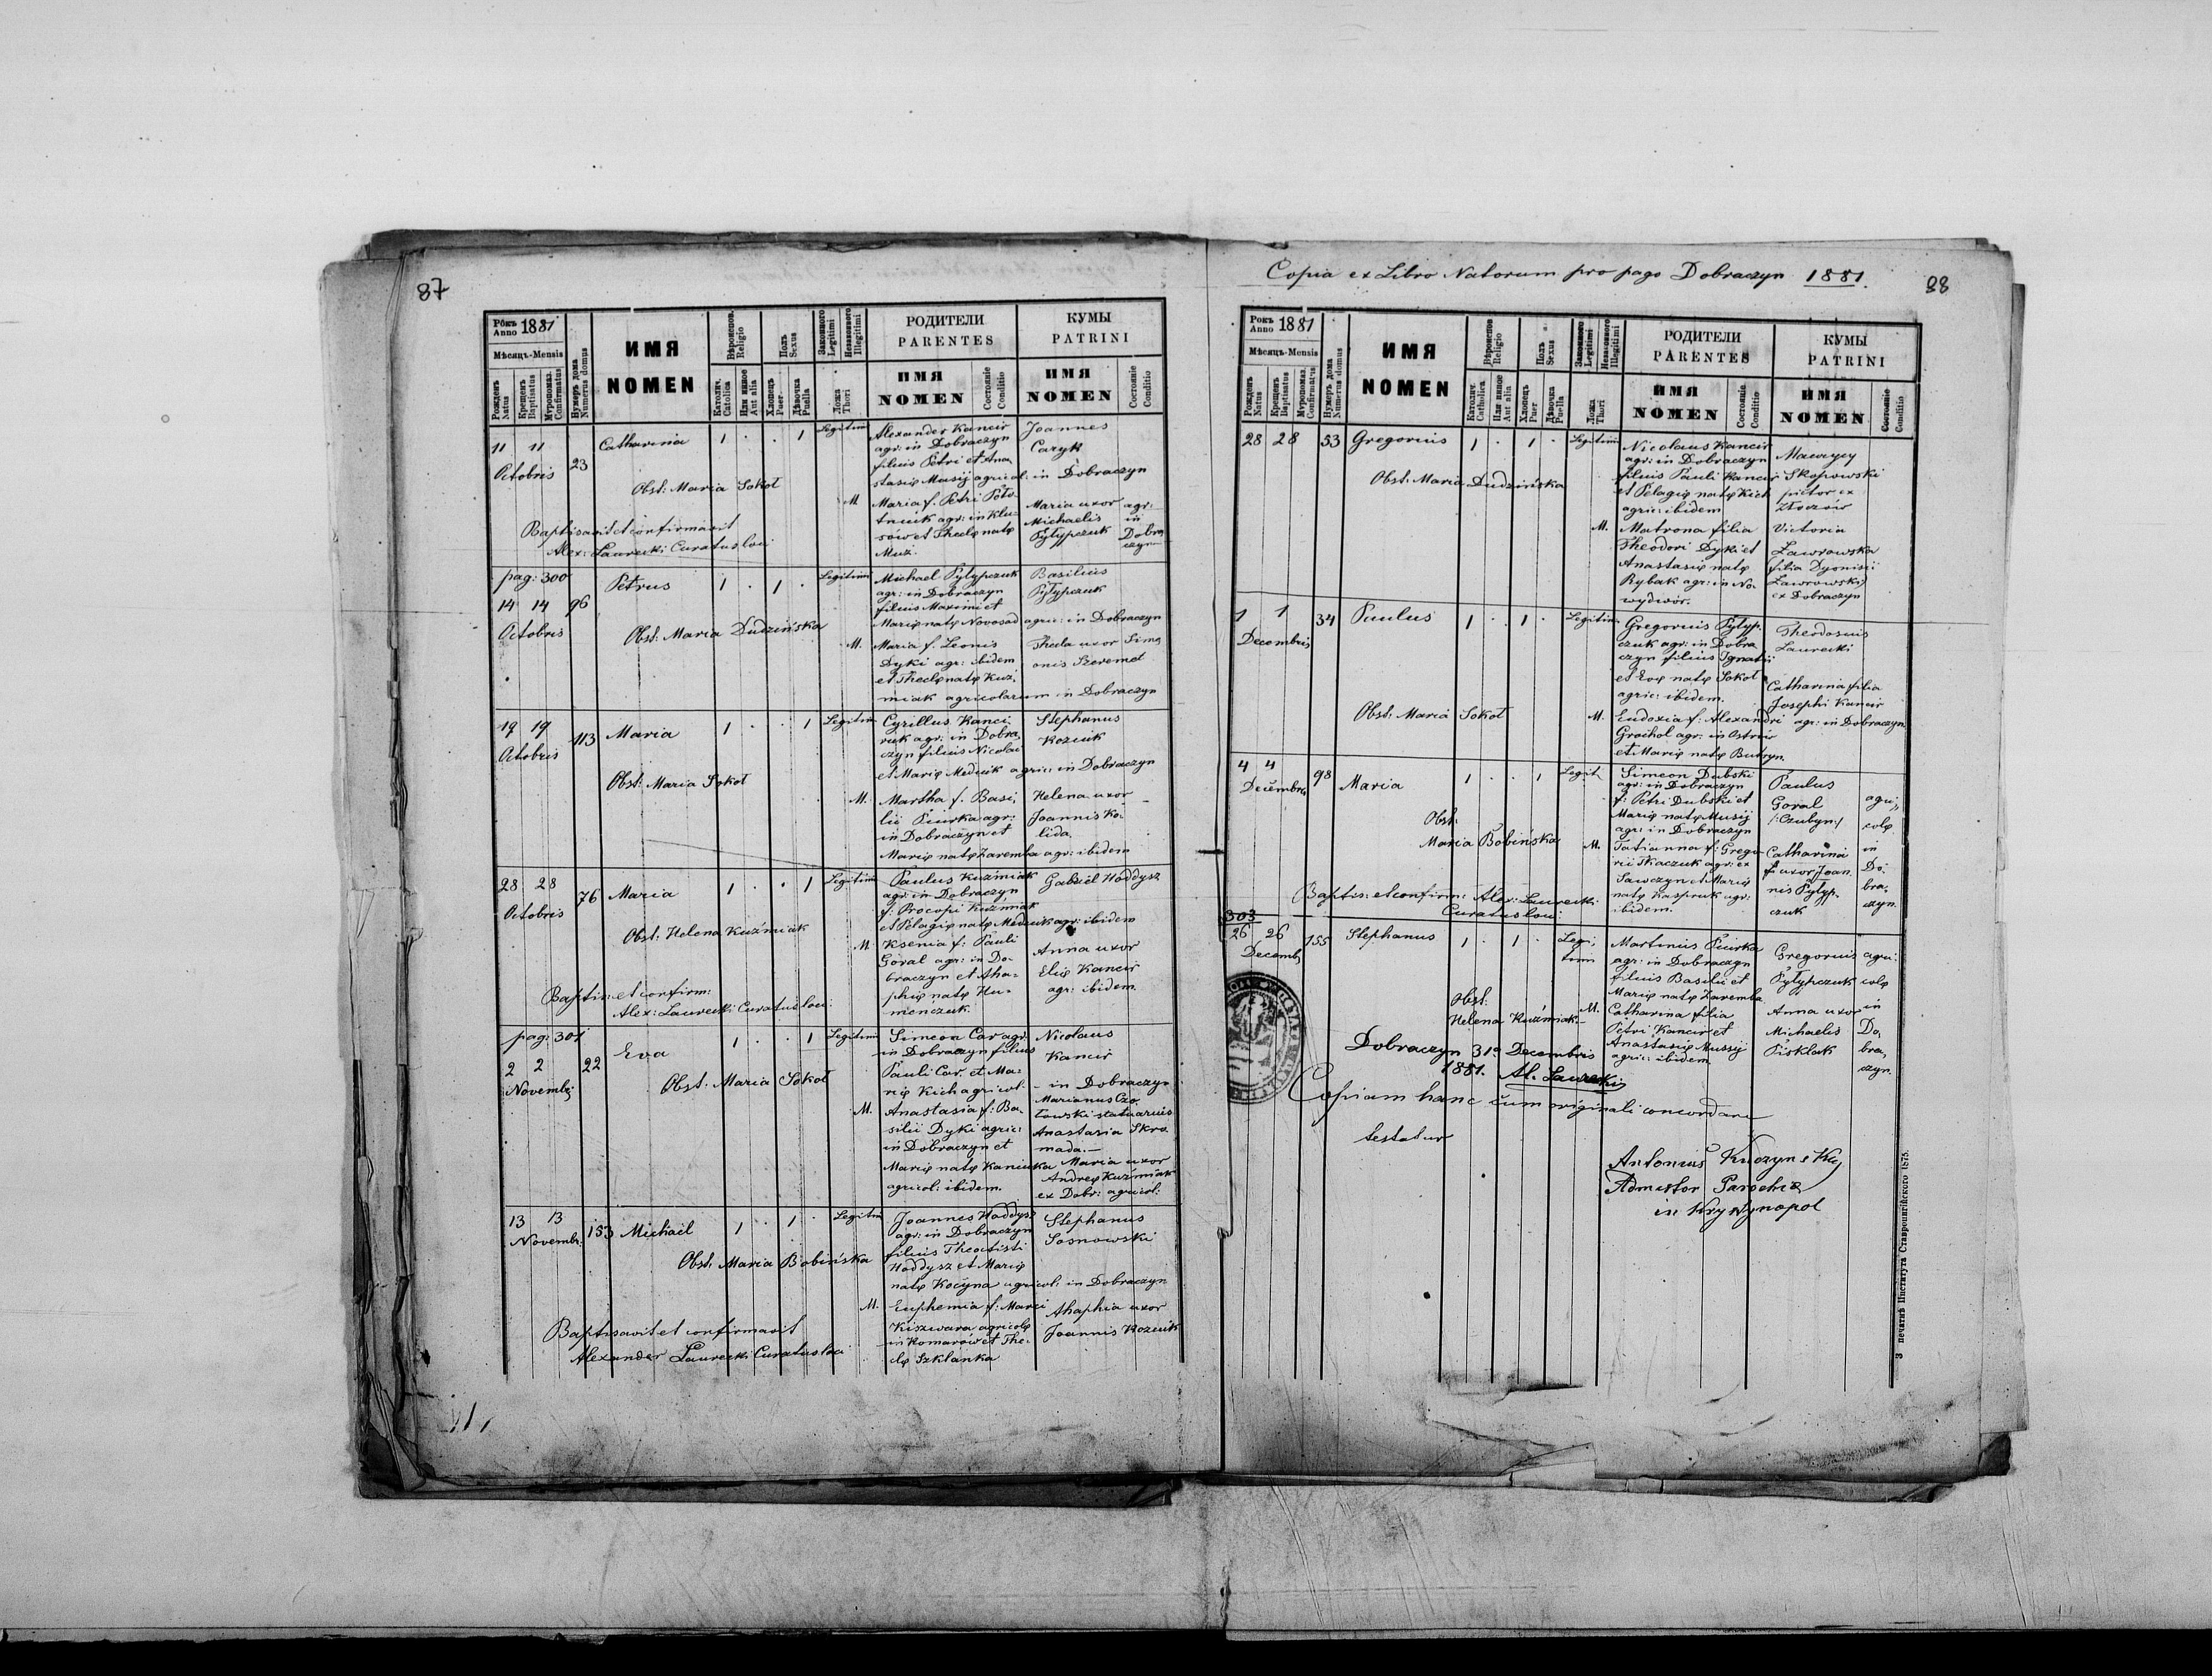 87
Рôкъ Anno 1881
Мѣсяцъ-Mensis
Рожденъ Natus
Крещенъ Baptisatus
Муропомаз. Confirmatus
Нумеръ дома Numerus domus
ИМЯ
NOMEN
Вѣроиспов. Religio
Католич. Catolica
Или инное Aut alia
Полъ Sexus
Хлопецъ Puer
Дѣвочка Puella
Законного Legitimi
Незаконного Illegitimi
Ложа Thori
РОДИТЕЛИ
PARENTES
ИМЯ
NOMEN
Состояніе Conditio
КУМЫ
PATRINI
ИМЯ
NOMEN
Состояніе Conditio
11 11
Octobris
23
Catharina
1 . . 1
Legitimi
Obst: Maria Sokoł
Baptisavit et confirmavit
Alex: Laurecki Curatus loci
Alexander Kancir
agr: in Dobraczyn
filius Petri et Ana
stasię Musij agricol: in Dobraczyn
M. Maria f. Petri Poło
tniuk agr: in Klu
sow et Theclę natę
Muz.
Joannes
Caryk
Maria uxor agr:
Michaelis in
Pyłypczuk Dobra
czyn
pag: 300
14 14
Octobris
96
Petrus
1 . 1 .
Legitimi
Obst: Maria Dudzińska
Michael Pyłypczuk
agr: in Dobraczyn
filius Maximi et
Marię natę Novosad agric: in Dobraczyn
M. Maria f. Leonis
Dyki agr: ibidem
et Theclę natę Kuź
miak agricolarum in Dobraczyn
Basilius
Pyłypczuk
Thecla uxor Sime
onis Szeremet
19 19
Octobris
113
Maria
1 . . 1
Legitim
Obst: Maria Sokoł
Cyrillus Kanci
ruk agr: in Dobra
czyn filius Nicolai
et Marię Medwik agric: in Dobraczyn
M. Martha f. Basi
lii Piurka agr:
in Dobraczyn et
Marię natę Zaremba agr: ibidem
Stephanus
Koziuk
Helena uxor
Joannis Ko
lida.
28 28
Octobris
76
Maria
1 . . 1
Legitimi
Obst: Helena Kuźmiak
Baptis: et confirm:
Alex: Laurecki Curatus loci
Paulus Kuźmiak
agr: in Dobraczyn
f: Procopi Kuźmiak
et Pelagię natę Medwik agr: ibidem
M. Ksenia f: Pauli
Goral agr: in Do-
braczyn et Aha=
phię natę Hu=
menczuk.
Gabriel Haddysz
Anna uxor
Elię Kancir
agr: ibidem.
pag: 301
2 2
Novembr
22
Eva
1 . . 1
Legitimi
Obst: Maria Sokoł
Simeon Car agr.
in Dobraczyn filius
Pauli Car. et Ma-
rię Kich agricol.
M. Anastasia f: Ba-
silii Dyki agric:
in Dobraczyn et
Marię natę Kaniuka
agricol: ibidem.
Nicolaus
Kancir
- in Dobraczyn
Marianus Czo
łowski statuarius
Anastasia Skro
mada.-
Maria uxor
Andreę Kuźmiak
ex Dobr: agricol:
13 13
Novembr.
153
Michael
1 . 1 .
Legitim
Obst: Maria Bobińska
Baptisavit et confirmavit
Alexander Laurecki Curatus loci
Joannes Haddysz
agr: in Dobraczyn
filius Theoctisti
Haddysz et Marię
natę Kocyna agricol: in Dobraczyn
M. Euphemia f: Marci
Kiszwara agricolę
in Komarów et The-
clę Szklanka
Stephanus
Sosnowski
Ahaphia uxor
Joannis Koziuk
Copia ex Libro Natorum pro pago Dobraczyn 1881.
88
Рокъ Anno 1881
Мѣсяцъ-Mensis
Рожденъ Natus
Крещенъ Baptisatus
Муропомаз. Confirmatus
Нумеръ дома Numerus domus
ИМЯ
NOMEN
Вѣроиспов Religio
Католич. Catholica
Или инное Aut alia
Полъ Sexus
Хлопецъ Puer
Дѣвочка Puella
Законного Legitimi
Незаконного Illegitimi
Ложа Thori
РОДИТЕЛИ
PARENTES
ИМЯ
NOMEN
Состояніе Conditio
КУМЫ
PATRINI
ИМЯ
NOMEN
Состояніе Conditio
28 28
53
Gregorius
1 . 1 .
Legitimi
Obst: Maria Dudzińska
Nicolaus Kancir
agr: in Dobraczyn
filius Pauli Kancir
et Pelagię natę Kich
agric: ibidem
M. Matrona filia
Theodori Dyki et
Anastasię natę
Rybak agr: in No-
wydwór.
Maurycy
Skopowski
pictor ex
Złoczów
Victoria
Ławrowska
filia Dyonisii
Ławrowski
ex Dobraczyn
1 1
Decembris
34
Paulus
1 . 1 .
Legitim
Obst: Maria Sokoł
Gregorius Pyłyp-
czuk agr: in Dobra
czyn filius Ignatii
et Evę natę Sokoł
agric: ibidem.
M. Eudoxia f: Alexandri
Groihol agr: in Ostrów
et Marię natę Butryn.
Theodosius
Laurecki
Catharina filia
Josephi Kancir
agr: in Dobraczyn
4 4
Decembris
98
Maria
1 . . 1
Legit
Obst:
Maria Bobińska
Baptis: et confirm: Alex: Laurecki
Curatus loci
Simeon Dubski
agr: in Dobraczyn
f: Petri Dubski et
Marię natę Musij
agr: in Dobraczyn
M. Tatianna f: Grego
rii Tkaczuk agr: ex
Sawczyn et Marię
natę Kaspruk agr:
ibidem.
Paulus
Goral
/:Czubyn:/
Catharina
uxor Joan
nis Pyłyp-
czuk
agri-
colę
in
Do-
bra-
czyn.
303
26 26
Decemb
155
Stephanus
1 . 1 .
Legi
timi
Obst:
Helena Kuźmiak.-
Martinus Piurka
agr: in Dobraczyn
filius Basilii et
Marię natę Zaremba
M. Catharina filia
Petri Kancir et
Anastasię Mussij
agric: ibidem
Gregorius
Pyłypczuk
Anna uxor
Michaelis
Pisklak
agri:
colę
in
Do
bra,
czyn.
Dobraczyn 31a Decembris
1881. Al. Laurecki
Copiam hanc cum originali concordare
testatur
Antonius Kuczyński
Admistor Parochię
in Krystynopol
З печатнѣ Института Ставропигійского 1875.